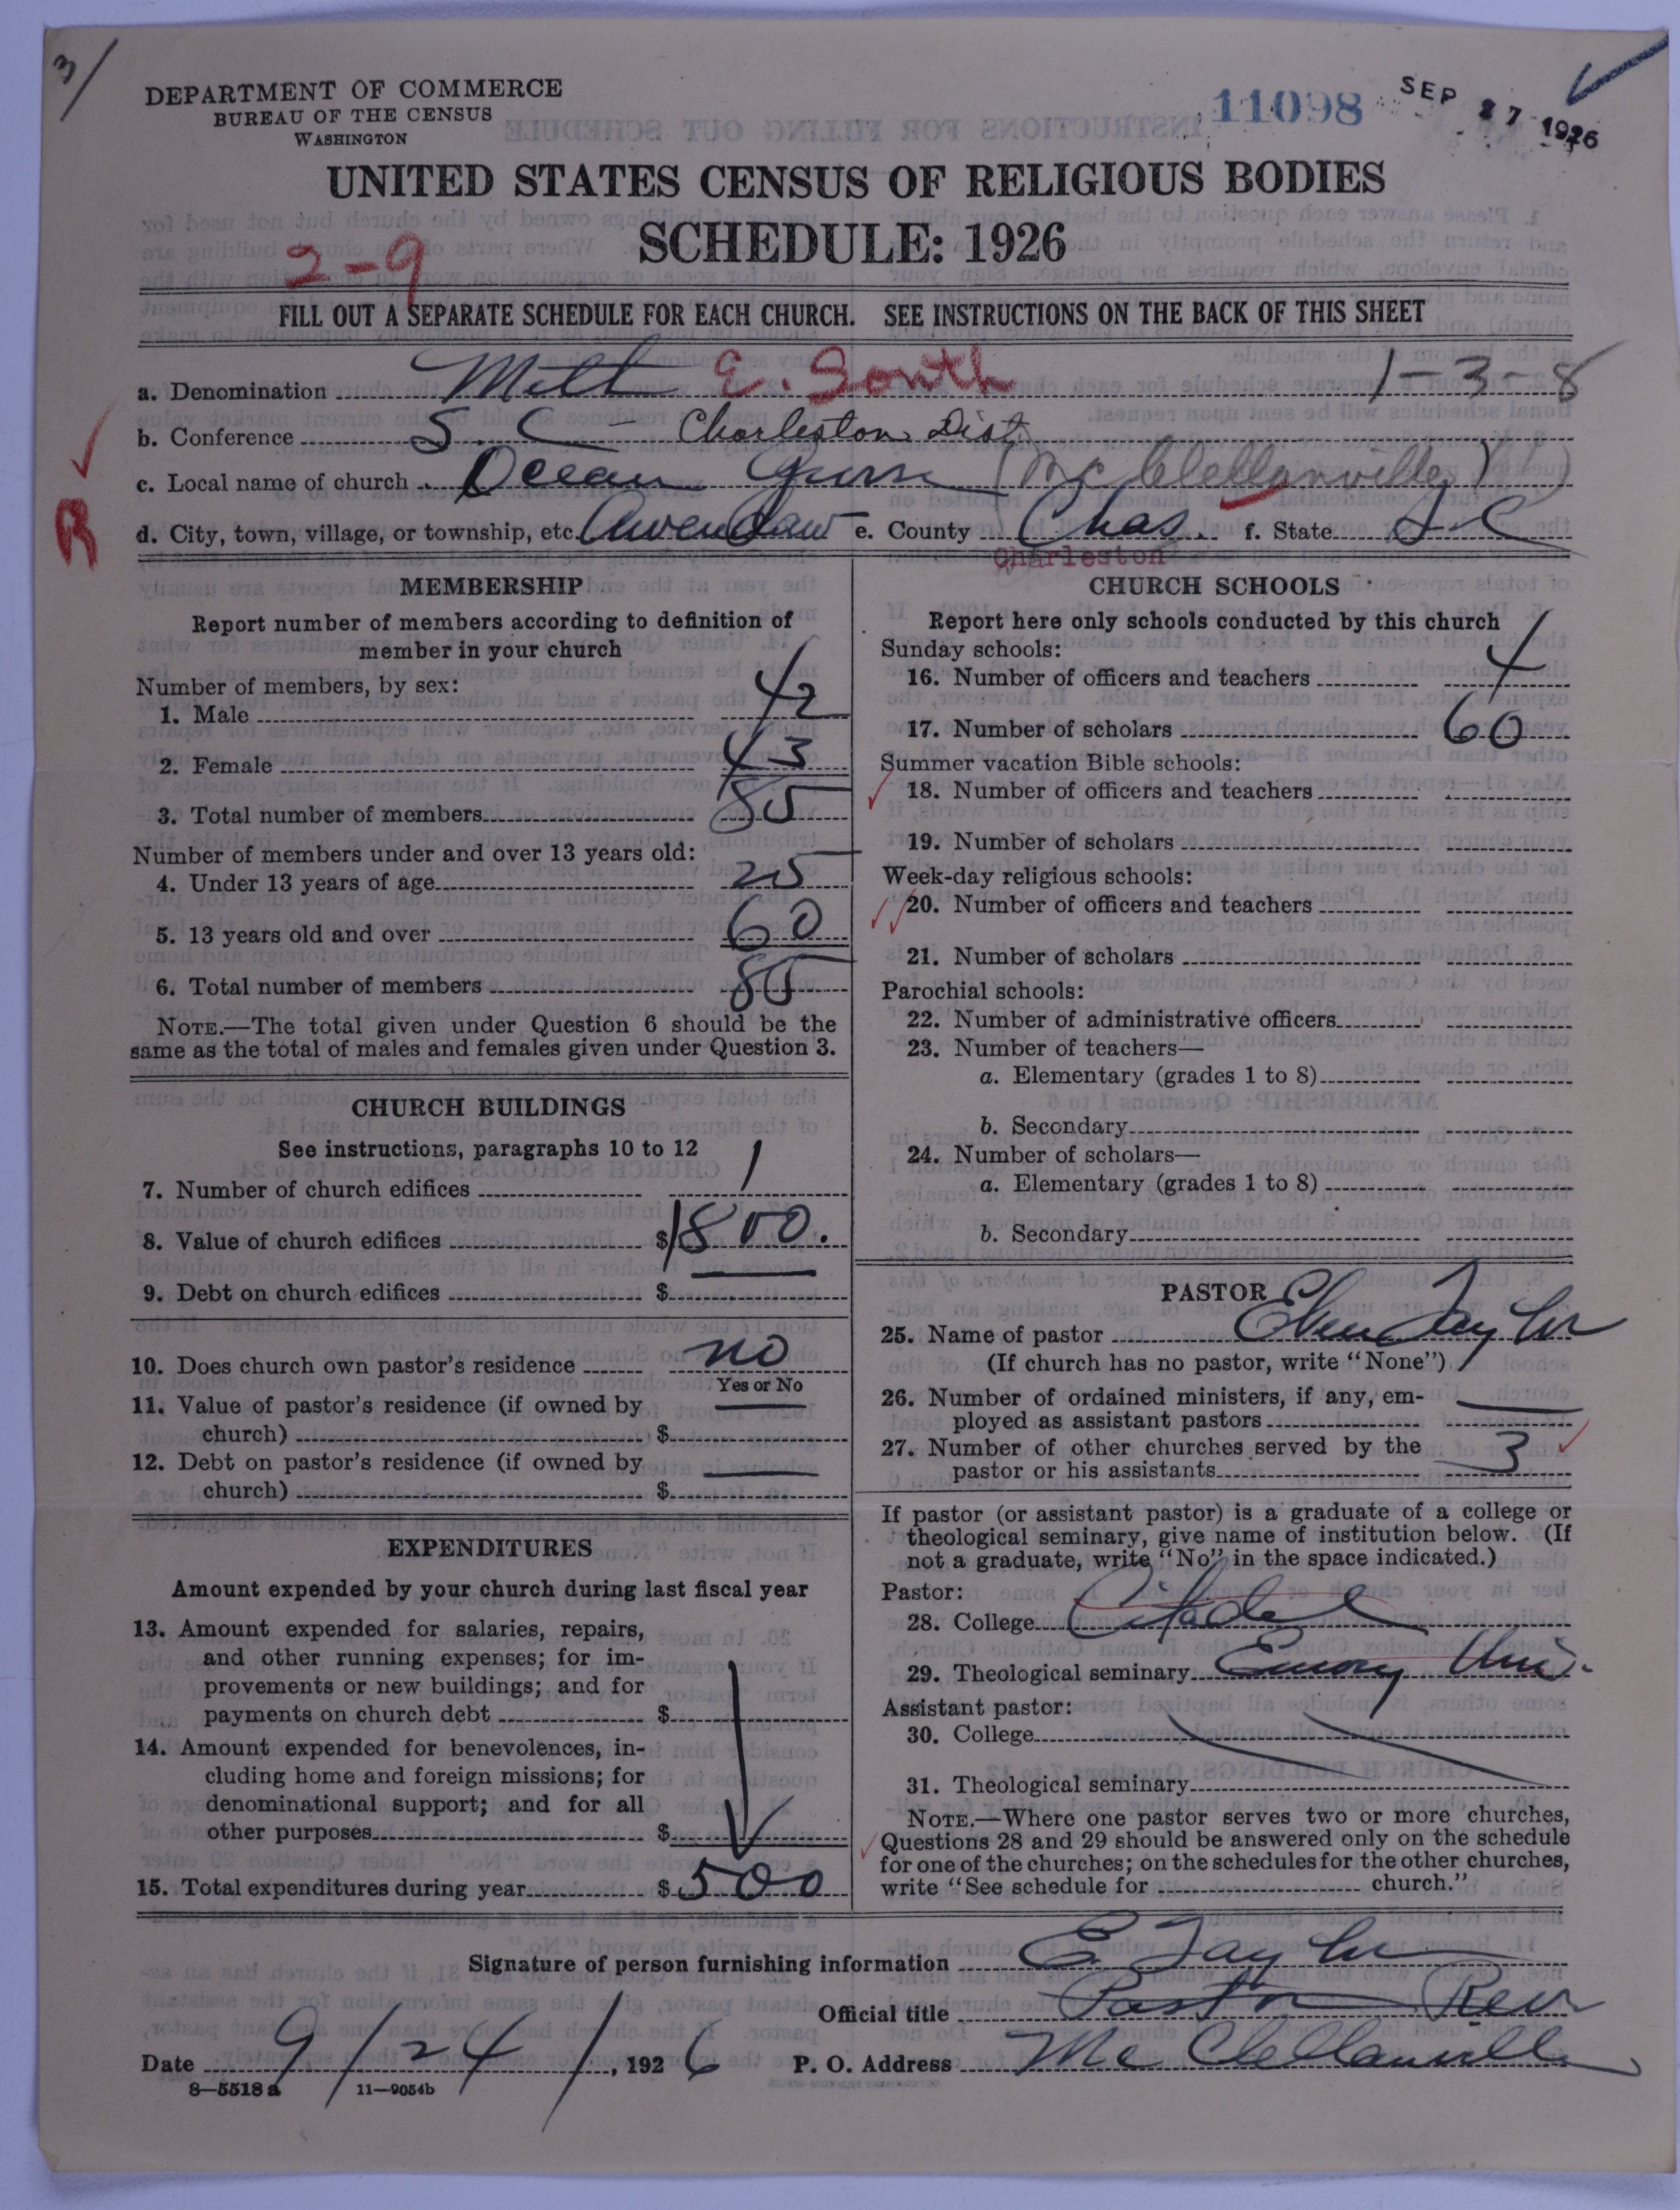 3/
DEPARTMENT OF COMMERCE
BUREAU OF THE CENSUS
WASHINGTON
11098
SEP 27 1926
UNITED STATES CENSUS OF RELIGIOUS BODIES
SCHEDULE: 1926
2-9
FILL OUT A SEPARATE SCHEDULE FOR EACH CHURCH. SEE INSTRUCTIONS ON THE BACK OF THIS SHEET
a. Denomination Meth E. South 1-3-8
b. Conference S. C - Charleston Dist
c. Local name of church Ocean Grove (McClellanville)
R
d. City, town, village, or township, etc. Awendaw e. County Chas. f. State S-C
Charleston
MEMBERSHIP
Report number of members according to definition of
member in your church
Number of members, by sex:
1. Male 42
2. Female 43
3. Total number of members 85
Number of members under and over 13 years old:
4. Under 13 years of age 25
5. 13 years old and over 60
6. Total number of members 85
NOTE.—The total given under Question 6 should be the
same as the total of males and females given under Question 3.
CHURCH BUILDINGS
See instructions, paragraphs 10 to 12
7. Number of church edifices 1
8. Value of church edifices $1800.
9. Debt on church edifices $
10. Does church own pastor's residence no
Yes or No
11. Value of pastor's residence (if owned by
church) $
12. Debt on pastor's residence (if owned by
church) $
EXPENDITURES
Amount expended by your church during last fiscal year
13. Amount expended for salaries, repairs,
and other running expenses; for im-
provements or new buildings; and for
payments on church debt $
14. Amount expended for benevolences, in-
cluding home and foreign missions; for
denominational support; and for all
other purposes $
15. Total expenditures during year $500
CHURCH SCHOOLS
Report here only schools conducted by this church
Sunday schools:
16. Number of officers and teachers 4
17. Number of scholars 60
Summer vacation Bible schools:
18. Number of officers and teachers
19. Number of scholars
Week-day religious schools:
20. Number of officers and teachers
21. Number of scholars
Parochial schools:
22. Number of administrative officers
23. Number of teachers—
a. Elementary (grades 1 to 8)
b. Secondary
24. Number of scholars—
a. Elementary (grades 1 to 8)
b. Secondary
PASTOR
25. Name of pastor Eben Taylor
(If church has no pastor, write "None")
26. Number of ordained ministers, if any, em-
ployed as assistant pastors
27. Number of other churches served by the
pastor or his assistants 3
If pastor (or assistant pastor) is a graduate of a college or
theological seminary, give name of institution below. (If
not a graduate, write "No" in the space indicated.)
Pastor:
28. College Citadel
29. Theological seminary Emory Uni.
Assistant pastor:
30. College
31. Theological seminary
NOTE.—Where one pastor serves two or more churches,
Questions 28 and 29 should be answered only on the schedule
for one of the churches; on the schedules for the other churches,
write "See schedule for church."
Signature of person furnishing information E Taylor
Official title Pastor Rev
Date 9/24/, 1926 P. O. Address McClellanville
8—5518 a 11—9054b